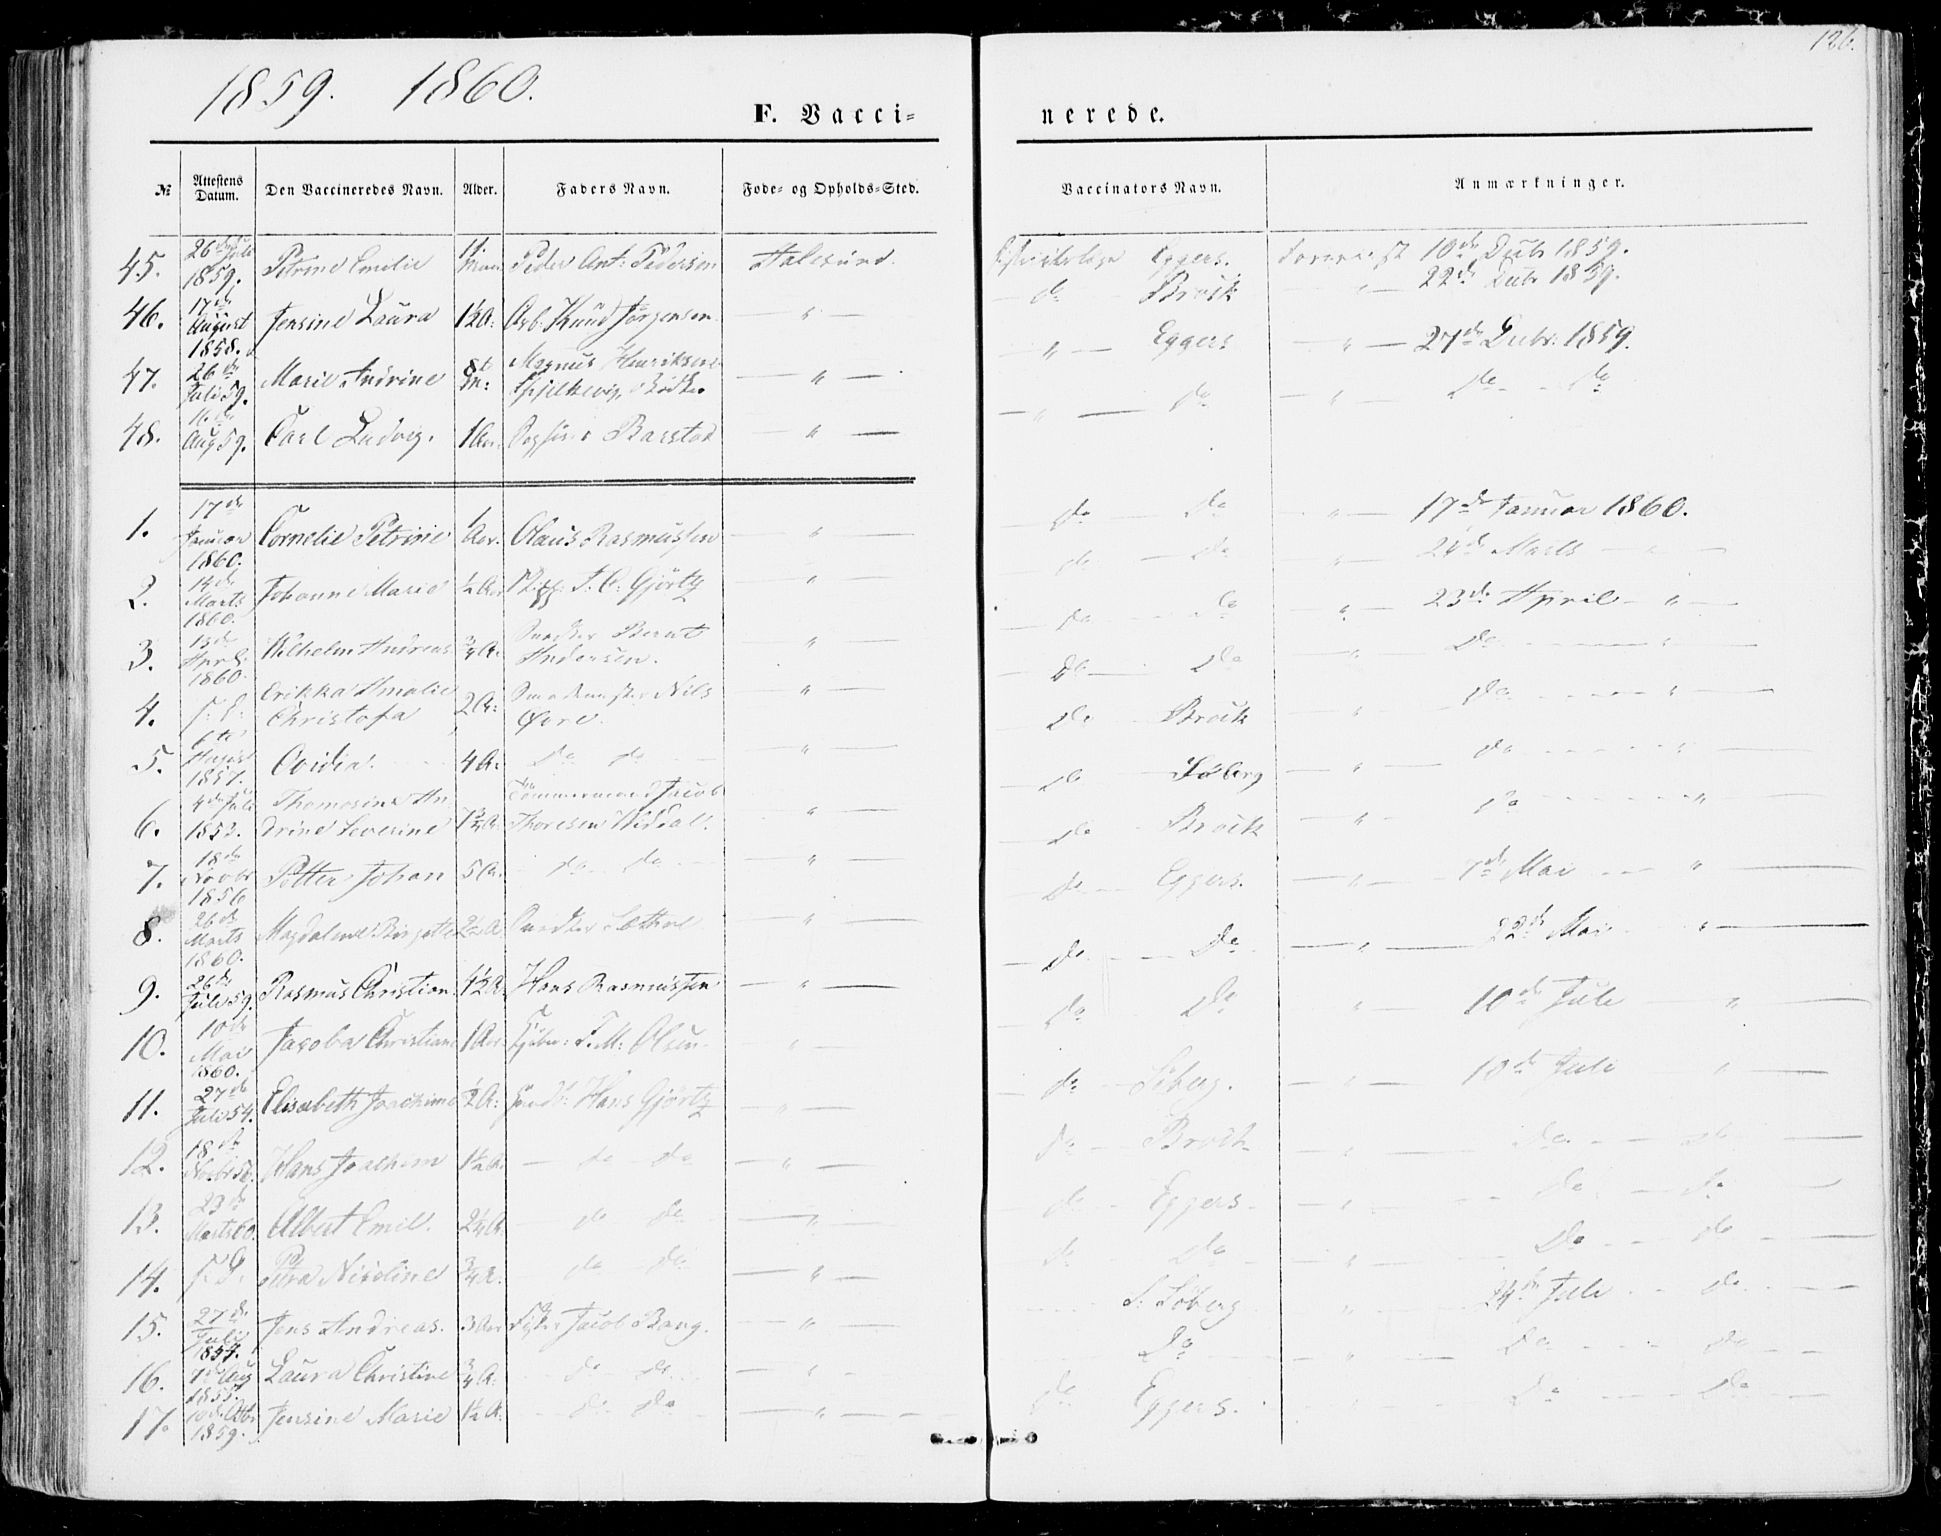 126.
1859. 1860.
F. Vacci-
nerede.
№ Attestens Datum. Den Vaccineredes Navn. Alder. Faders Navn. Føde- og Opholds-Sted. Vaccinators Navn. Anmærkninger.
45. 26de Juli 1859. Petrine Emelie Peder Ant: Pedersen Aalesund. Eggers. 10de Decbr 1859.
46. 17de August 1858. Jensine Laura 1½ A: Arb: Knud Jørgensen — " — do Brock — " — 22de Decbr 1859.
47. 26de Juli 59. Marie Andrine 8 M: Magnus Henriksen — " — — " — Eggers — " — 27de Decbr: 1859.
48. Aug 59. Carl Ludvig. 1 Aar. Barstad — " — — " — do — " — do do
1. 17de Januar 1860. Cornelie Petrine 1 Aar. Olaus Rasmussen — " — do do " 17de Januar 1860.
2. 14de Marts 1860. Johanne Marie ½ Aar Skipp: J. C. Gjørtz — " — do do " 24de Marts — " —
3. 13de April 1860. Wilhelm Andreas ¾ A. Snedker Bernt Andersen. " do do " 23de April — " —
4. s: d: Erikka Amalie Christofa 2 A: Nils Øvre. — " — do do " do "
5. August 1857. Ovidia. 4 A: do do " do Brock " do "
6. 4de Juli 1852. Thomasine Andrine Severine 1¾ A. Tømmermand Jacob Thoresen " do Søberg " do "
7. 18de Novbr 1856 Petter Johan 5 A. do do — " — do Brock " do "
8. 26de Marts 1860. Magdalene Birgitte 2½ A. Snedker Sættre — " — do Eggers. — " — 7de Mai "
9. 26de Juli 59. Rasmus Christian. 4½ A. Hans Rasmussen — " — do do — " — 22de Mai "
10. 10de Mai 1860. Jacoba Christiane 1 Aar. T. M: Olsen — " — do do " 10de Juli — " —
11. 27de Juli 54. Elisabeth Joachime ½ A: Hans Gjørtz — " — do Søberg. — " — 10de Juli "
12. 18de Novbr 56. Hans Joachim 1½ A. do do — " — do Brock — " — do do
13. 23de Marts 60. Albert Emil. 2¼ A. do do — " — do Eggers. — " — do do
14. s: d: Petra Nicoline ¾ A. do do — " — do do " do do
15. 27de Juli 1854. Jens Andreas. 3 Aar Jacob Bang. — " — S: Søberg " 24de Juli do
16. 7de Aug 1855. Laura Christine ¾ A. do do — " — do " do do
17. 10de Octbr 1859. Jensine Marie 1½ A. do do — " — do Eggers. do do